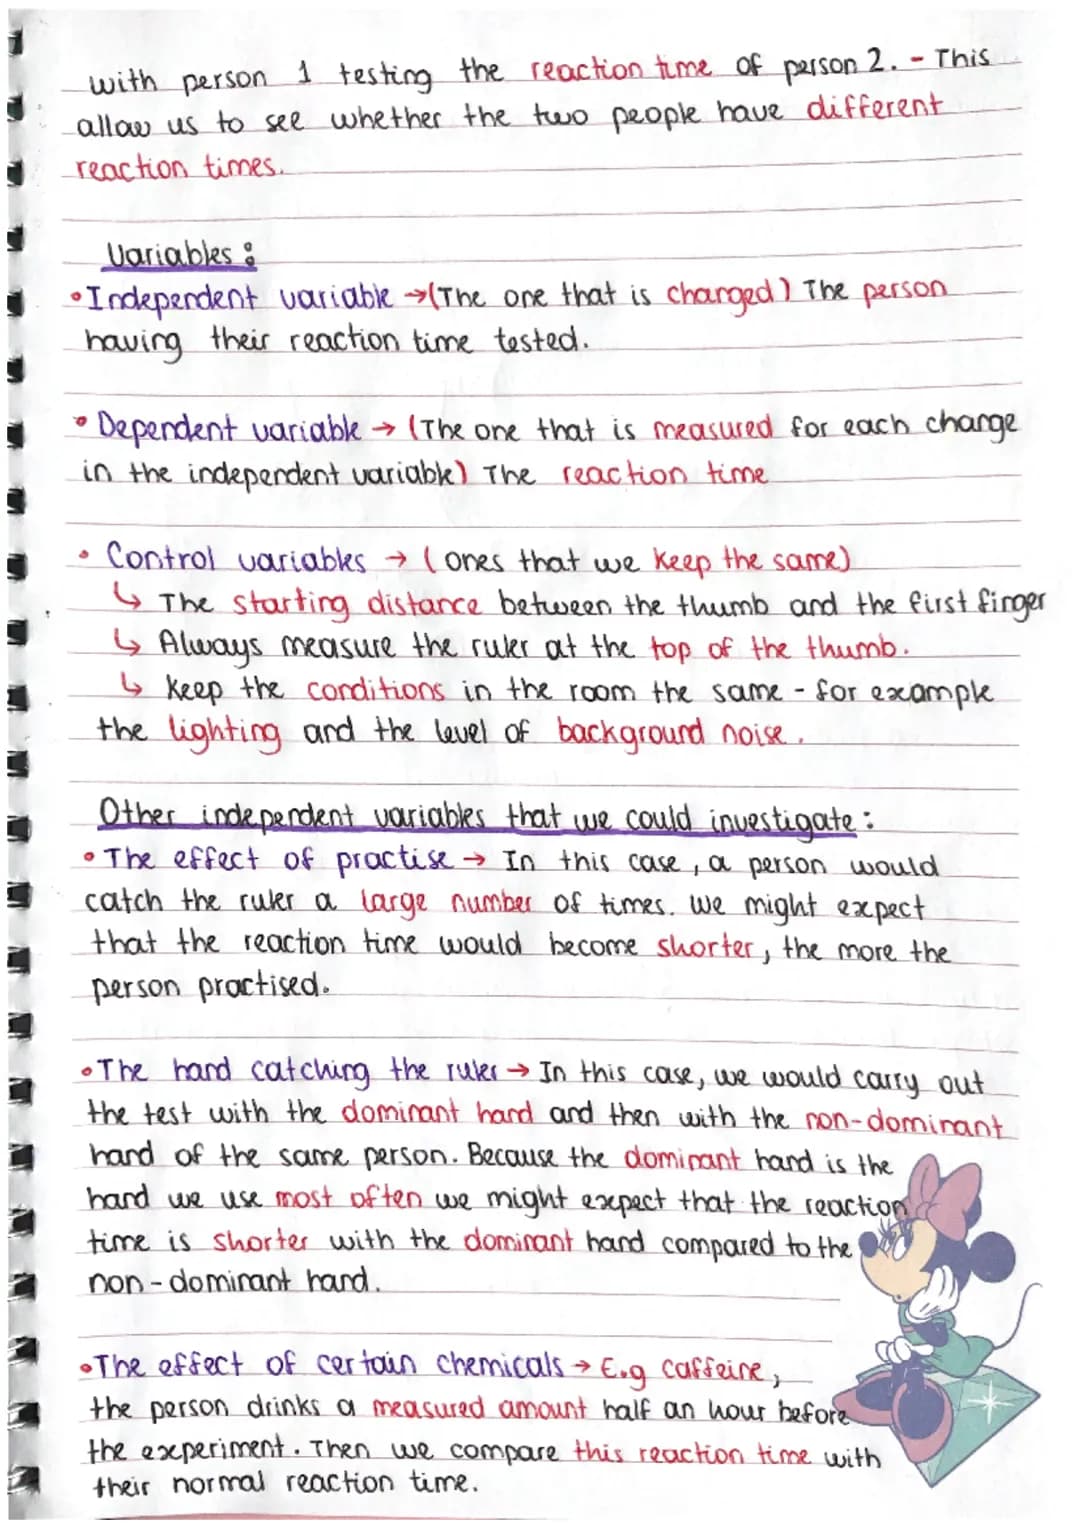 with person 1 testing the reaction time of person 2. - This
allow us to see whether the two people have different
reaction times.
Variables :
• Independent variable → (The one that is changed) The person
having their reaction time tested.
• Dependent variable → (The one that is measured for each change
in the independent variable) The reaction time
• Control variables → (ones that we keep the same)
↳ The starting distance between the thumb and the first finger
↳ Always measure the ruler at the top of the thumb.
↳ Keep the conditions in the room the same - for example
the lighting and the level of background noise.
Other independent variables that we could investigate :
• The effect of practise → In this case, a person would
catch the ruler a large number of times. We might expect
that the reaction time would become shorter, the more the
person practised.
• The hand catching the ruler → In this case, we would carry out
the test with the dominant hand and then with the non-dominant
hand of the same person. Because the dominant hand is the
hand we use most often we might expect that the reaction
time is shorter with the dominant hand compared to the
non-dominant hand.
• The effect of certain chemicals → E.g caffeine,
the person drinks a measured amount half an hour before
the experiment. Then we compare this reaction time with
their normal reaction time.